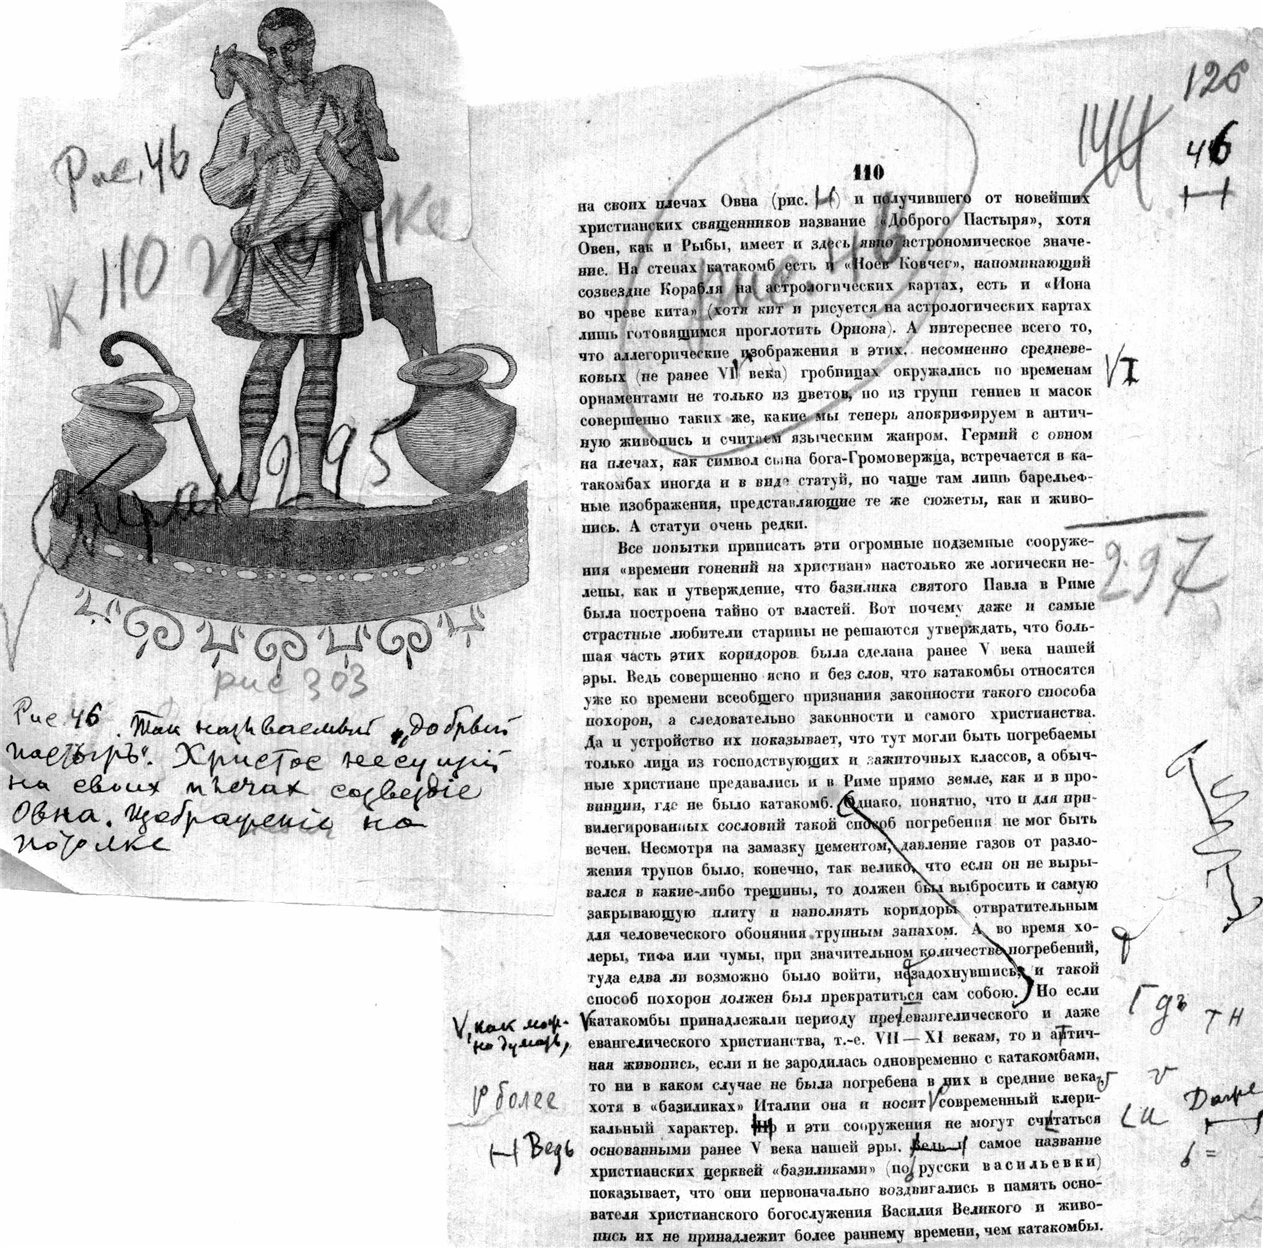 Рис. 46
К 110 п
Стран 295
рис 303
Рис 46. Так называемый „добрый
пастырь“. Христос несущий
на своих плечах созвездие
Овна. Изображение на
потолке
126
144
46
110
на своих плечах Овна (рис. ) и получившего от новейших
христианских священников название «Доброго Пастыря», хотя
Овен, как и Рыбы, имеет и здесь явно астрономическое значе-
ние. На стенах катакомб есть и «Ноев Ковчег», напоминающий
созвездие Корабля на астрологических картах, есть и «Иона
во чреве кита» (хотя кит и рисуется на астрологических картах
лишь готовящимся проглотить Ориона). А интереснее всего то,
что аллегорические изображения в этих, несомненно средневе-
ковых (не ранее VI века) гробницах окружались по временам
VI
орнаментами не только из цветов, но из групп гениев и масок
совершенно таких же, какие мы теперь апокрифируем в антич-
ную живопись и считаем языческим жанром. Гермий с овном
на плечах, как символ сына бога-Громовержца, встречается в ка-
такомбах иногда и в виде статуй, но чаще там лишь барельеф-
ные изображения, представляющие те же сюжеты, как и живо-
пись. А статуи очень редки.
рис. 46
Все попытки приписать эти огромные подземные сооруже-
ния «времени гонений на христиан» настолько же логически не-
лепы, как и утверждение, что базилика святого Павла в Риме
297
была построена тайно от властей. Вот почему даже и самые
страстные любители старины не решаются утверждать, что боль-
шая часть этих коридоров была сделана ранее V века нашей
эры. Ведь совершенно ясно и без слов, что катакомбы относятся
уже ко времени всеобщего признания законности такого способа
похорон, а следовательно законности и самого христианства.
Да и устройство их показывает, что тут могли быть погребаемы
только лица из господствующих и зажиточных классов, а обыч-
ные христиане предавались и в Риме прямо земле, как и в про-
винции, где не было катакомб. Однако, понятно, что и для при-
вилегированных сословий такой способ погребения не мог быть
вечен. Несмотря на замазку цементом, давление газов от разло-
жения трупов было, конечно, так велико, что если он не выры-
вался в какие-либо трещины, то должен был выбросить и самую
закрывающую плиту и наполнять коридоры отвратительным
для человеческого обоняния трупным запахом. А во время хо-
леры, тифа или чумы, при значительном количестве погребений,
туда едва ли возможно было войти, не задохнувшись, и такой
способ похорон должен был прекратиться сам собою. Но если
катакомбы принадлежали периоду предевангелического и даже
, как мож-
но думать,
евангелического христианства, т.-е. VII—XI векам, то и антич-
ная живопись, если и не зародилась одновременно с катакомбами,
то ни в каком случае не была погребена в них в средние века,
более
хотя в «базиликах» Италии она и носит современный клери-
кальный характер. и эти сооружения не могут считаться
основанными ранее V века нашей эры. самое название
Ведь
христианских церквей «базиликами» (по русски васильевки)
показывает, что они первоначально воздвигались в память осно-
вателя христианского богослужения Василия Великого и живо-
пись их не принадлежит более раннему времени, чем катакомбы.